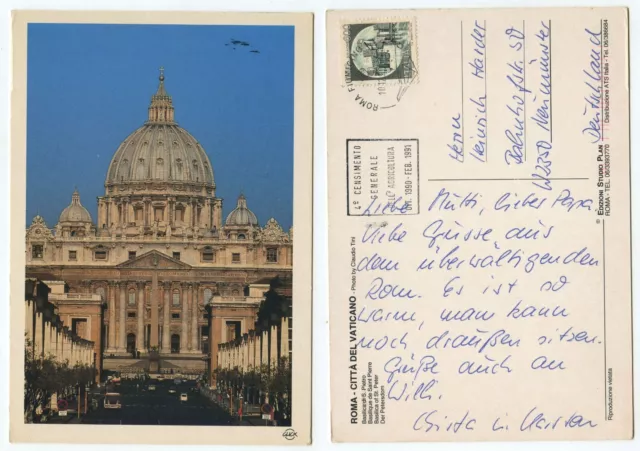 CLICK
ROMA FIUMICINO
4° CENSIMENTO
GENERALE
DELL'AGRICOLTURA
DIC. 1990 - FEB. 1991
Herrn
Heinrich Harder
Bahnhofstr. 50
W2350 Neumünster
Deutschland
Liebe Mutti, lieber Papa
Liebe Grüsse aus
dem überwältigenden
Rom. Es ist so
warm, man kann
noch draußen sitzen.
Grüße auch an
Willi.
Christa
ROMA - CITTÀ DEL VATICANO - Photo by Claudio Tini
Basilica di S. Pietro
Basilique de Saint Pierre
Basilica of St. Peter
Der Petersdom
EDIZIONI STUDIO PLAN
ROMA - TEL.
Distribuzione ATS Italia - Tel.
Riproduzione vietata